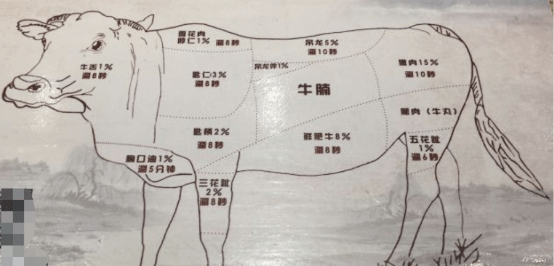 雪花肉
脖仁1% 涮8秒
吊龙5%
涮10秒
牛舌1%
涮8秒
匙仁3%
涮8秒
吊龙伴1%
牛腩
涮10秒
匙柄2%
涮8秒
鲜肥牛8%
涮8秒
肉(牛丸)
五花趾
1%
涮6秒
胸口油1%
涮5分钟
三花趾
2%
涮8秒